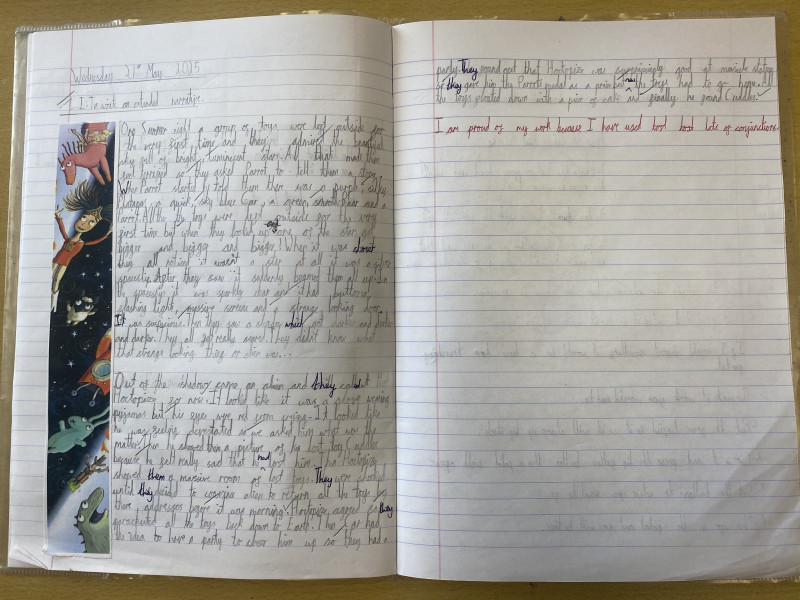 Wednesday 21st May 2025
L.I: To write an extended narrative.
One Summer night a group of toys were left outside for
the very first time and they admired the beautiful
sky full of bright, luminecent stars. All that made them
feel so they asked Parrot to tell them a story.
Why Parrot started he told them there was a purple, silky
a quiet, sky blue Car, a green, smooth and a
Parrot. All the toys were left outside for the very
first time but when they looked up one of the star got
bigger and bigger and bigger! When it was closest
they all noticed it wasn't a star at all it was a silver
spaceship. After they saw it suddenly beamed them all up. In
the spaceship it was sparkly clean and it had buttons,
flashing light, massive screens and a strange looking door.
It was suspicious. Then they saw a shadow which got darker and darker
and darker. They all got really scared. They didn't know what
that strange looking thing or alien was...
Out of the shadows came an alien and they called
Hoctopize for now. It looked like it was a wearing
pyjamas but his eyes were red from crying. It looked like
he was feeling devastated so we asked him what was the
matter. Then he showed them a picture of his lost toy Cuddles
because he felt really sad that he had lost him. Then Hoctopize
showed them a massive room of lost toys. They were shocked
until they decided to alien to return all the toys
there addresses before it was morning. Hoctopize agreed so they
parachuted all the toys back down to Earth. had
the idea to have a party to cheer him up so they had a
party. They found out that Hoctopize was surprisingly good at musicle statues
so they gave him the Parrots medal as a prize but now the toys had to go home.
the toys floated down with a pair of and finally he found Cuddles.
I am proud of my work because I have used lost lost lots of conjunctions.